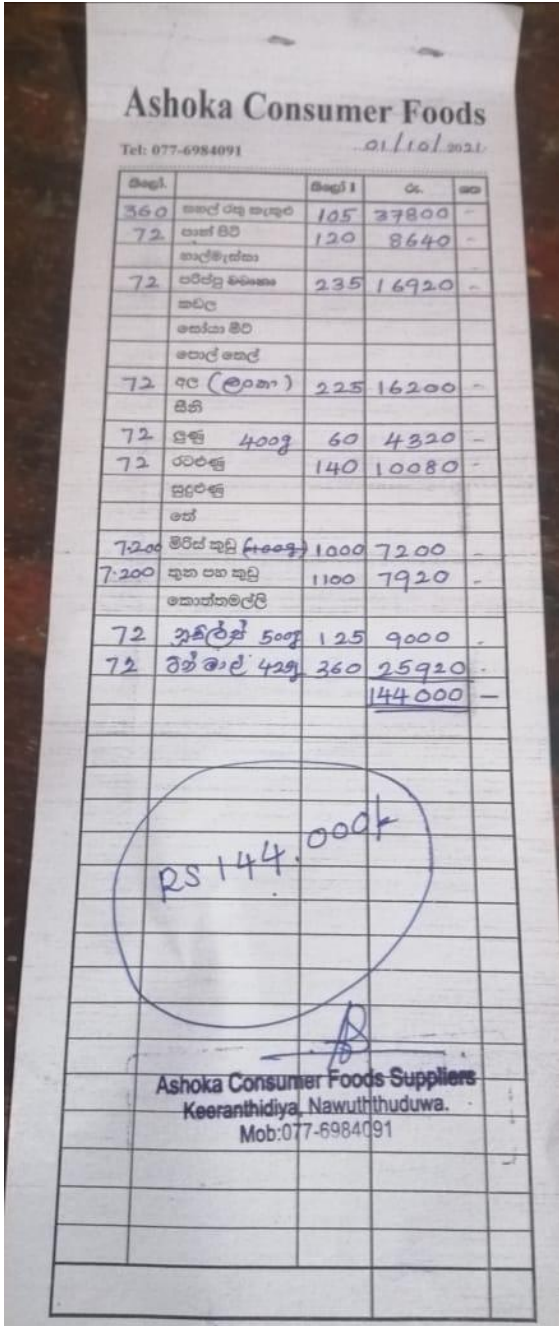 Ashoka Consumer Foods
Tel: 077-6984091 01/10/2021
කිලෝ. කිලෝ 1 රු. ශත
360 කකුළු 105 37800 -
72 පාන් පිටි 120 8640 -
හාල්මැස්සා
72 පරිප්පු 235 16920 -
කඩල
සෝයා මීට්
පොල් තෙල්
72 අල (ලංකා) 225 16200 -
සීනි
72 ලුණු 400g 60 4320 -
72 රටළුණු 140 10080 -
සුදුළුණු
තේ
7.200 මිරිස් කුඩු (100g) 1000 7200 -
7.200 තුන පහ කුඩු 1100 7920 -
කොත්තමල්ලි
72 500g 125 9000 -
72 ටින් මාල් 425g 360 25920 -
144000 —
RS 144.000/-
Ashoka Consumer Foods Suppliers
Keeranthidiya, Nawuththuduwa.
Mob:077-6984091